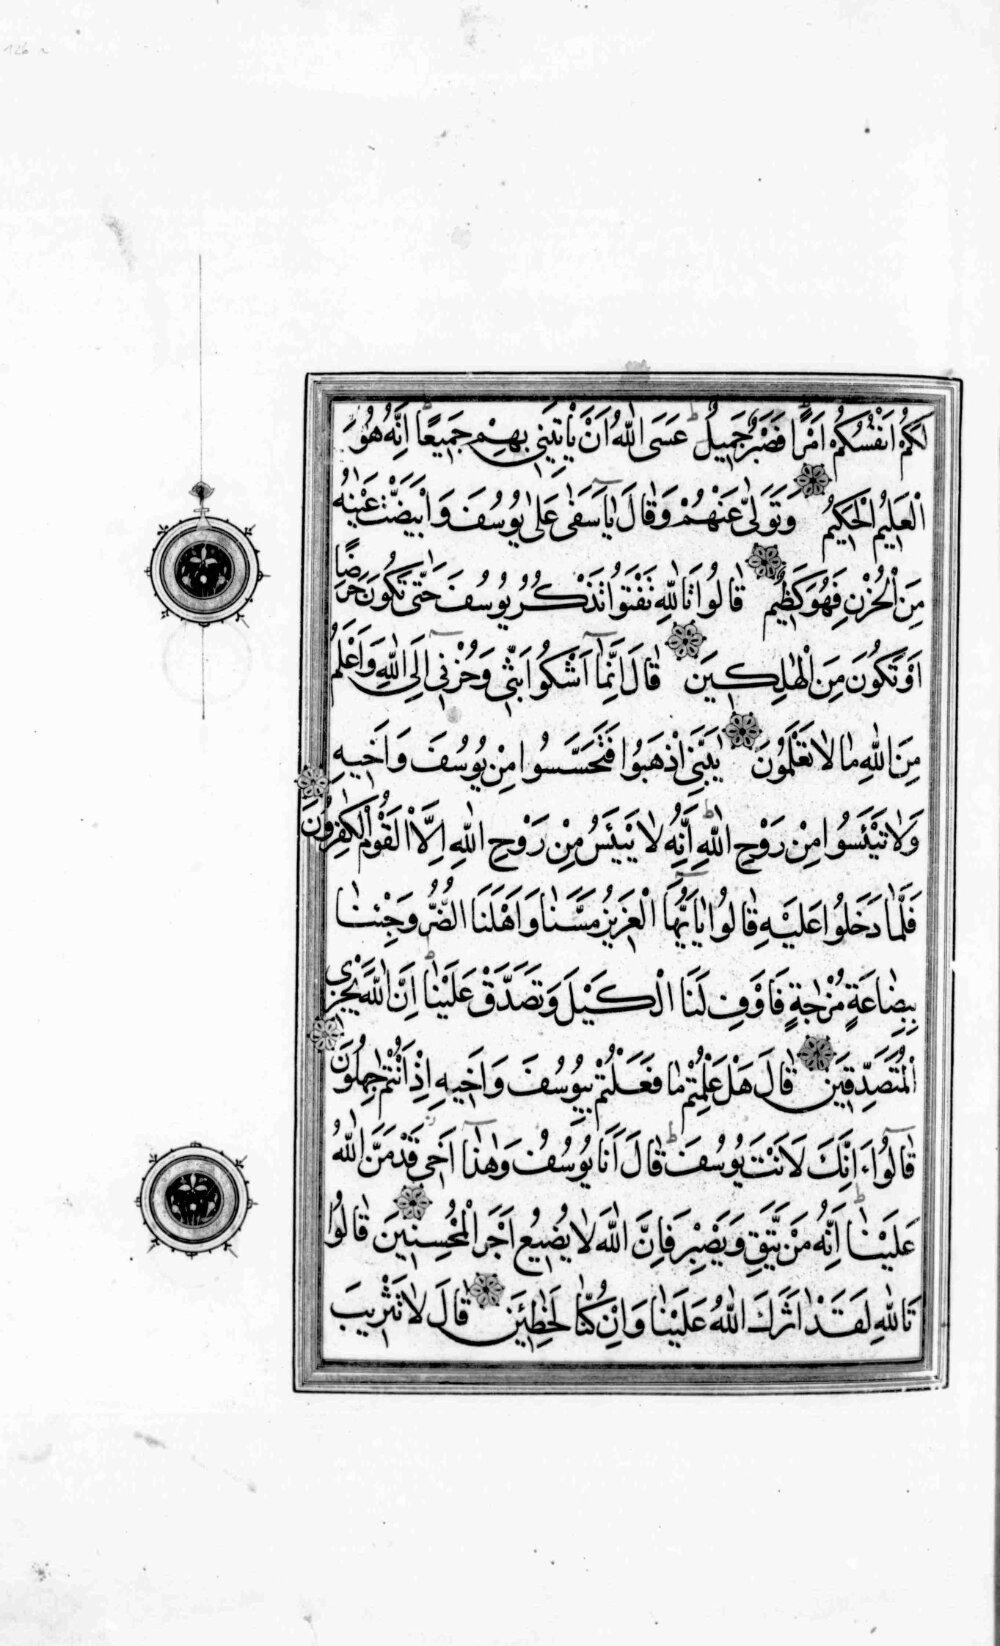 لَكُمْ اَنْفُسُكُمْ اَمْرًا فَصَبْرٌ جَمِيلٌ عَسَى اللّٰهُ اَنْ يَاْتِيَنِى بِهِمْ جَمِيعًا اِنَّهُ هُوَ
الْعَلِيمُ الْحَكِيمُ وَتَوَلّٰى عَنْهُمْ وَقَالَ يَٰٓاَسَفٰى عَلٰى يُوسُفَ وَابْيَضَّتْ عَيْنٰهُ
مِنَ الْحُزْنِ فَهُوَ كَظِيمٌ قَالُوا تَاللّٰهِ تَفْتَؤُا تَذْكُرُ يُوسُفَ حَتّٰى تَكُونَ حَرَضًا
اَوْ تَكُونَ مِنَ الْهٰلِكِينَ قَالَ اِنَّمَٓا اَشْكُوا بَثِّى وَحُزْنِٓى اِلَى اللّٰهِ وَاَعْلَمُ
مِنَ اللّٰهِ مَا لَا تَعْلَمُونَ يٰبَنِىَّ اذْهَبُوا فَتَحَسَّسُوا مِنْ يُوسُفَ وَاَخِيهِ
وَلَا تَيْئَسُوا مِنْ رَوْحِ اللّٰهِ اِنَّهُ لَا يَيْئَسُ مِنْ رَوْحِ اللّٰهِ اِلَّا الْقَوْمُ الْكٰفِرُونَ
فَلَمَّا دَخَلُوا عَلَيْهِ قَالُوا يَٰٓاَيُّهَا الْعَزِيزُ مَسَّنَا وَاَهْلَنَا الضُّرُّ وَجِئْنَا
بِبِضَاعَةٍ مُزْجٰةٍ فَاَوْفِ لَنَا الْكَيْلَ وَتَصَدَّقْ عَلَيْنَا اِنَّ اللّٰهَ يَجْزِى
الْمُتَصَدِّقِينَ قَالَ هَلْ عَلِمْتُمْ مَا فَعَلْتُمْ بِيُوسُفَ وَاَخِيهِ اِذْ اَنْتُمْ جٰهِلُونَ
قَالُٓوا ءَاِنَّكَ لَاَنْتَ يُوسُفُ قَالَ اَنَا يُوسُفُ وَهٰذَٓا اَخِى قَدْ مَنَّ اللّٰهُ
عَلَيْنَا اِنَّهُ مَنْ يَتَّقِ وَيَصْبِرْ فَاِنَّ اللّٰهَ لَا يُضِيعُ اَجْرَ الْمُحْسِنِينَ قَالُوا
تَاللّٰهِ لَقَدْ اٰثَرَكَ اللّٰهُ عَلَيْنَا وَاِنْ كُنَّا لَخٰطِئِينَ قَالَ لَا تَثْرِيبَ